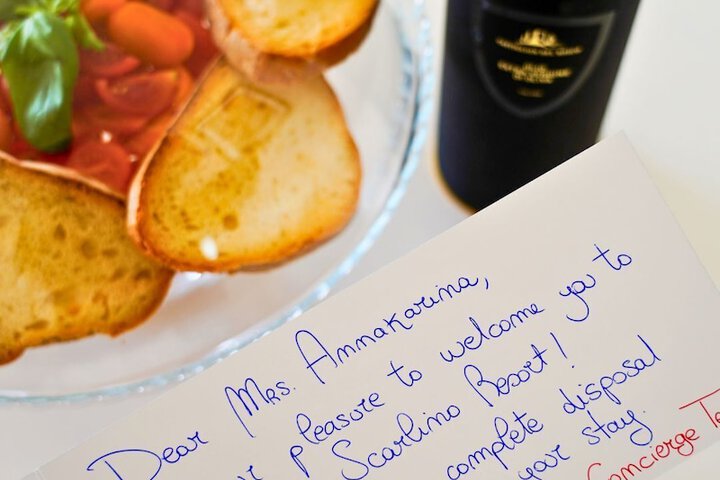 Dear Mrs. Annakarina,
pleasure to welcome you to
Scarlino Resort!
complete disposal
your stay.
Concierge